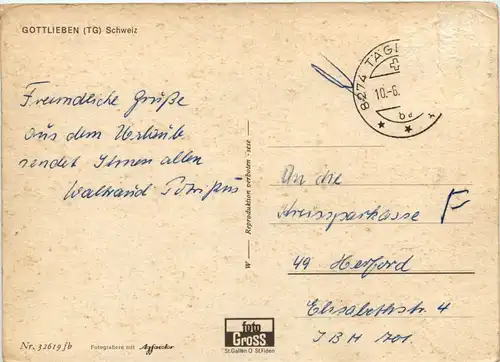 GOTTLIEBEN (TG) Schweiz
8274 TÄG
10.-6.
Freundliche Grüße
aus dem Urlaube
sendet Ihnen allen
Waltraud
An die
Kreissparkasse F
49 Herford
Elisabethstr. 4
W — Reproduktion verboten
foto
GROSS
St.Gallen O St.Fiden
Nr. 32619 fb
Fotografiere mit Agfacolor